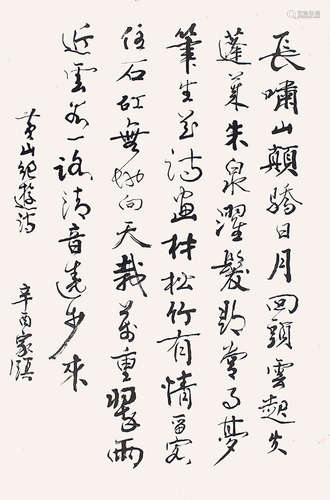 長嘯山顛驕日月回頭雲起失
蓬萊朱泉濯髮夢
筆生花詩畫材松竹有情留客
住石無向天栽萬重翠雨
近雲一路清音遶步來
黃山紀遊詩
辛酉家